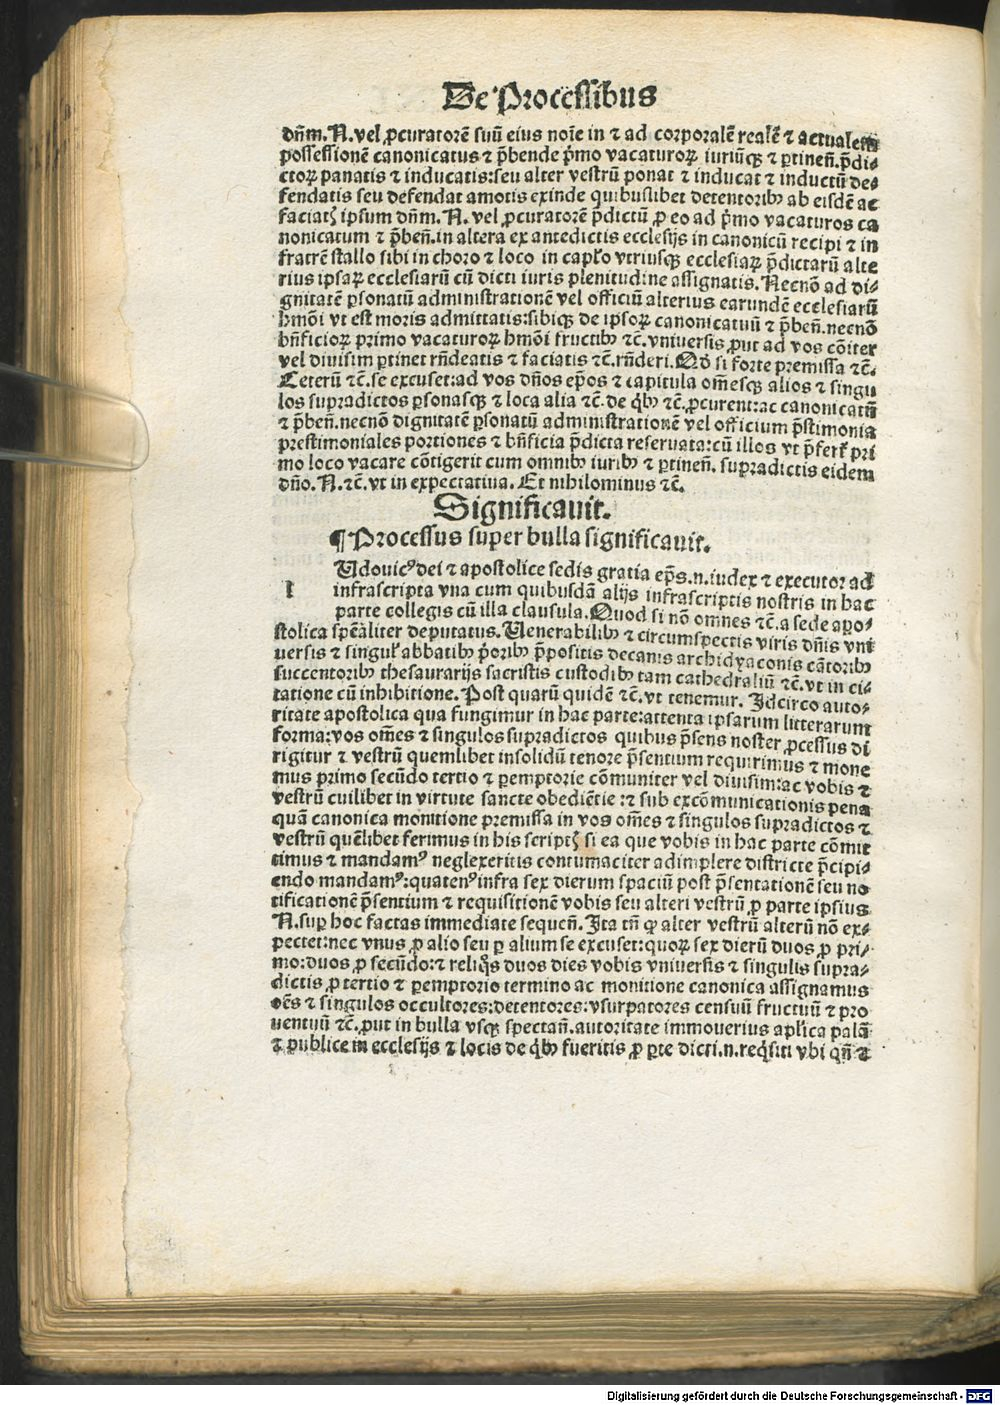 De Processibus
dñm. N. vel ꝓcuratorē suū eius noīe in ⁊ ad corporalē realē ⁊ actualem
possessionē canonicatus ⁊ p̄bende p̄mo vacaturoꝝ iuriūqꝫ ⁊ ꝑtineñ. p̄di⸗
ctoꝝ panatis ⁊ inducatis: seu alter vestrū ponat ⁊ inducat ⁊ inductū de⸗
fendatis seu defendat amotis exinde quibuslibet detentoribꝰ ab eisdē ac
faciatꝭ ipsum dñm. N. vel ꝓcuratorē p̄dictū ꝓ eo ad p̄mo vacaturos ca
nonicatum ⁊ p̄beñ. in altera ex antedictis ecclesijs in canonicū recipi ⁊ in
fratrē stallo sibi in choro ⁊ loco in capło vtriusqꝫ ecclesiaꝝ p̄dictarū alte
rius ipsaꝝ ecclesiarū cū dicti iuris plenitudine assignatis. Necnō ad di⸗
gnitatē ꝑsonatū administrationē vel officiū alterius earundē ecclesiarū
hmōi vt est moris admittatis: sibiqꝫ de ipsoꝝ canonicatuū ⁊ p̄beñ. necnō
bñficioꝝ primo vacaturoꝝ hmōi fructibꝰ ⁊č. vniuersis ꝓut ad vos cōiter
vel diuisim ꝑtinet rñdeatis ⁊ faciatis ⁊č. rñderi. Qd̄ si forte premissa ⁊č.
Ceterū ⁊č. se excuset: ad vos dños ep̄os ⁊ capitula om̄esqꝫ alios ⁊ singu
los supradictos ꝑsonasqꝫ ⁊ loca alia ⁊č. de qͥbꝰ ⁊č. ꝓcurent: ac canonicatū
⁊ p̄beñ. necnō dignitatē ꝑsonatū administrationē vel officium p̄stimonia
prestimoniales portiones ⁊ bñficia p̄dicta reseruata: cū illos vt p̄fert̃ pri
mo loco vacare cōtigerit cum omnibꝰ iuribꝰ ⁊ ꝑtineñ. supradictis eidem
dño. N. ⁊č. vt in expectatiua. Et nihilominus ⁊č.
Significauit.
¶ Processus super bulla significauit.
l
Udouicꝰ dei ⁊ apostolice sedis gratia ep̄s. n. iudex ⁊ executor ad
infrascripta vna cum quibusdā alijs infrascriptis nostris in hac
parte collegis cū illa clausula. Quod si nō omnes ⁊č. a sede apo⸗
stolica spēaliter deputatus. Uenerabilibꝰ ⁊ circumspectis viris dñis vni
uersis ⁊ singuł abbatibꝰ p̄oribꝰ p̄positis decanis archidyaconis cātoribꝰ
succentoribꝰ thesaurarijs sacristis custodibꝰ tam cathedraliū ⁊č. vt in ci⸗
tatione cū inhibitione. Post quarū quidē ⁊č. vt tenemur. Idcirco auto⸗
ritate apostolica qua fungimur in hac parte: attenta ipsarum litterarum
forma: vos om̄es ⁊ singulos supradictos quibus p̄sens noster ꝓcessus di
rigitur ⁊ vestrū quemlibet insolidū tenore p̄sentium requirimus ⁊ mone
mus primo secūdo tertio ⁊ ꝑemptorie cōmuniter vel diuisim: ac vobis ⁊
vestrū cuilibet in virtute sancte obediētie: ⁊ sub excōmunicationis pena
quā canonica monitione premissa in vos om̄es ⁊ singulos supradictos ⁊
vestrū quēlibet ferimus in his scriptꝭ si ea que vobis in hac parte cōmit
timus ⁊ mandamꝰ neglexeritis contumaciter adimplere districte p̄cipi⸗
endo mandamꝰ: quatenꝰ infra sex dierum spaciū post p̄sentationē seu no
tificationē p̄sentium ⁊ requisitionē vobis seu alteri vestrū ꝓ parte ipsius
N. suꝑ hoc factas immediate sequeñ. Ita tñ ꝙ alter vestrū alterū nō ex⸗
pectet: nec vnus ꝓ alio seu ꝑ alium se excuset: quoꝝ sex dierū duos ꝓ pri⸗
mo: duos ꝓ secūdo: ⁊ reliqͦs duos dies vobis vniuersis ⁊ singulis supra⸗
dictis ꝓ tertio ⁊ ꝑemptorio termino ac monitione canonica assignamus
oēs ⁊ singulos occultores: detentores: vsurpatores censuū fructuū ⁊ pro
uentuū ⁊č. ꝓut in bulla vsqꝫ spectañ. autoritate immouerius apl̄ica palā
⁊ publice in ecclesijs ⁊ locis de qͥbꝰ fueritis ꝓ ꝑte dicti. n. reqͥsiti vbi qñ ⁊
Digitalisierung gefördert durch die Deutsche Forschungsgemeinschaft - DFG